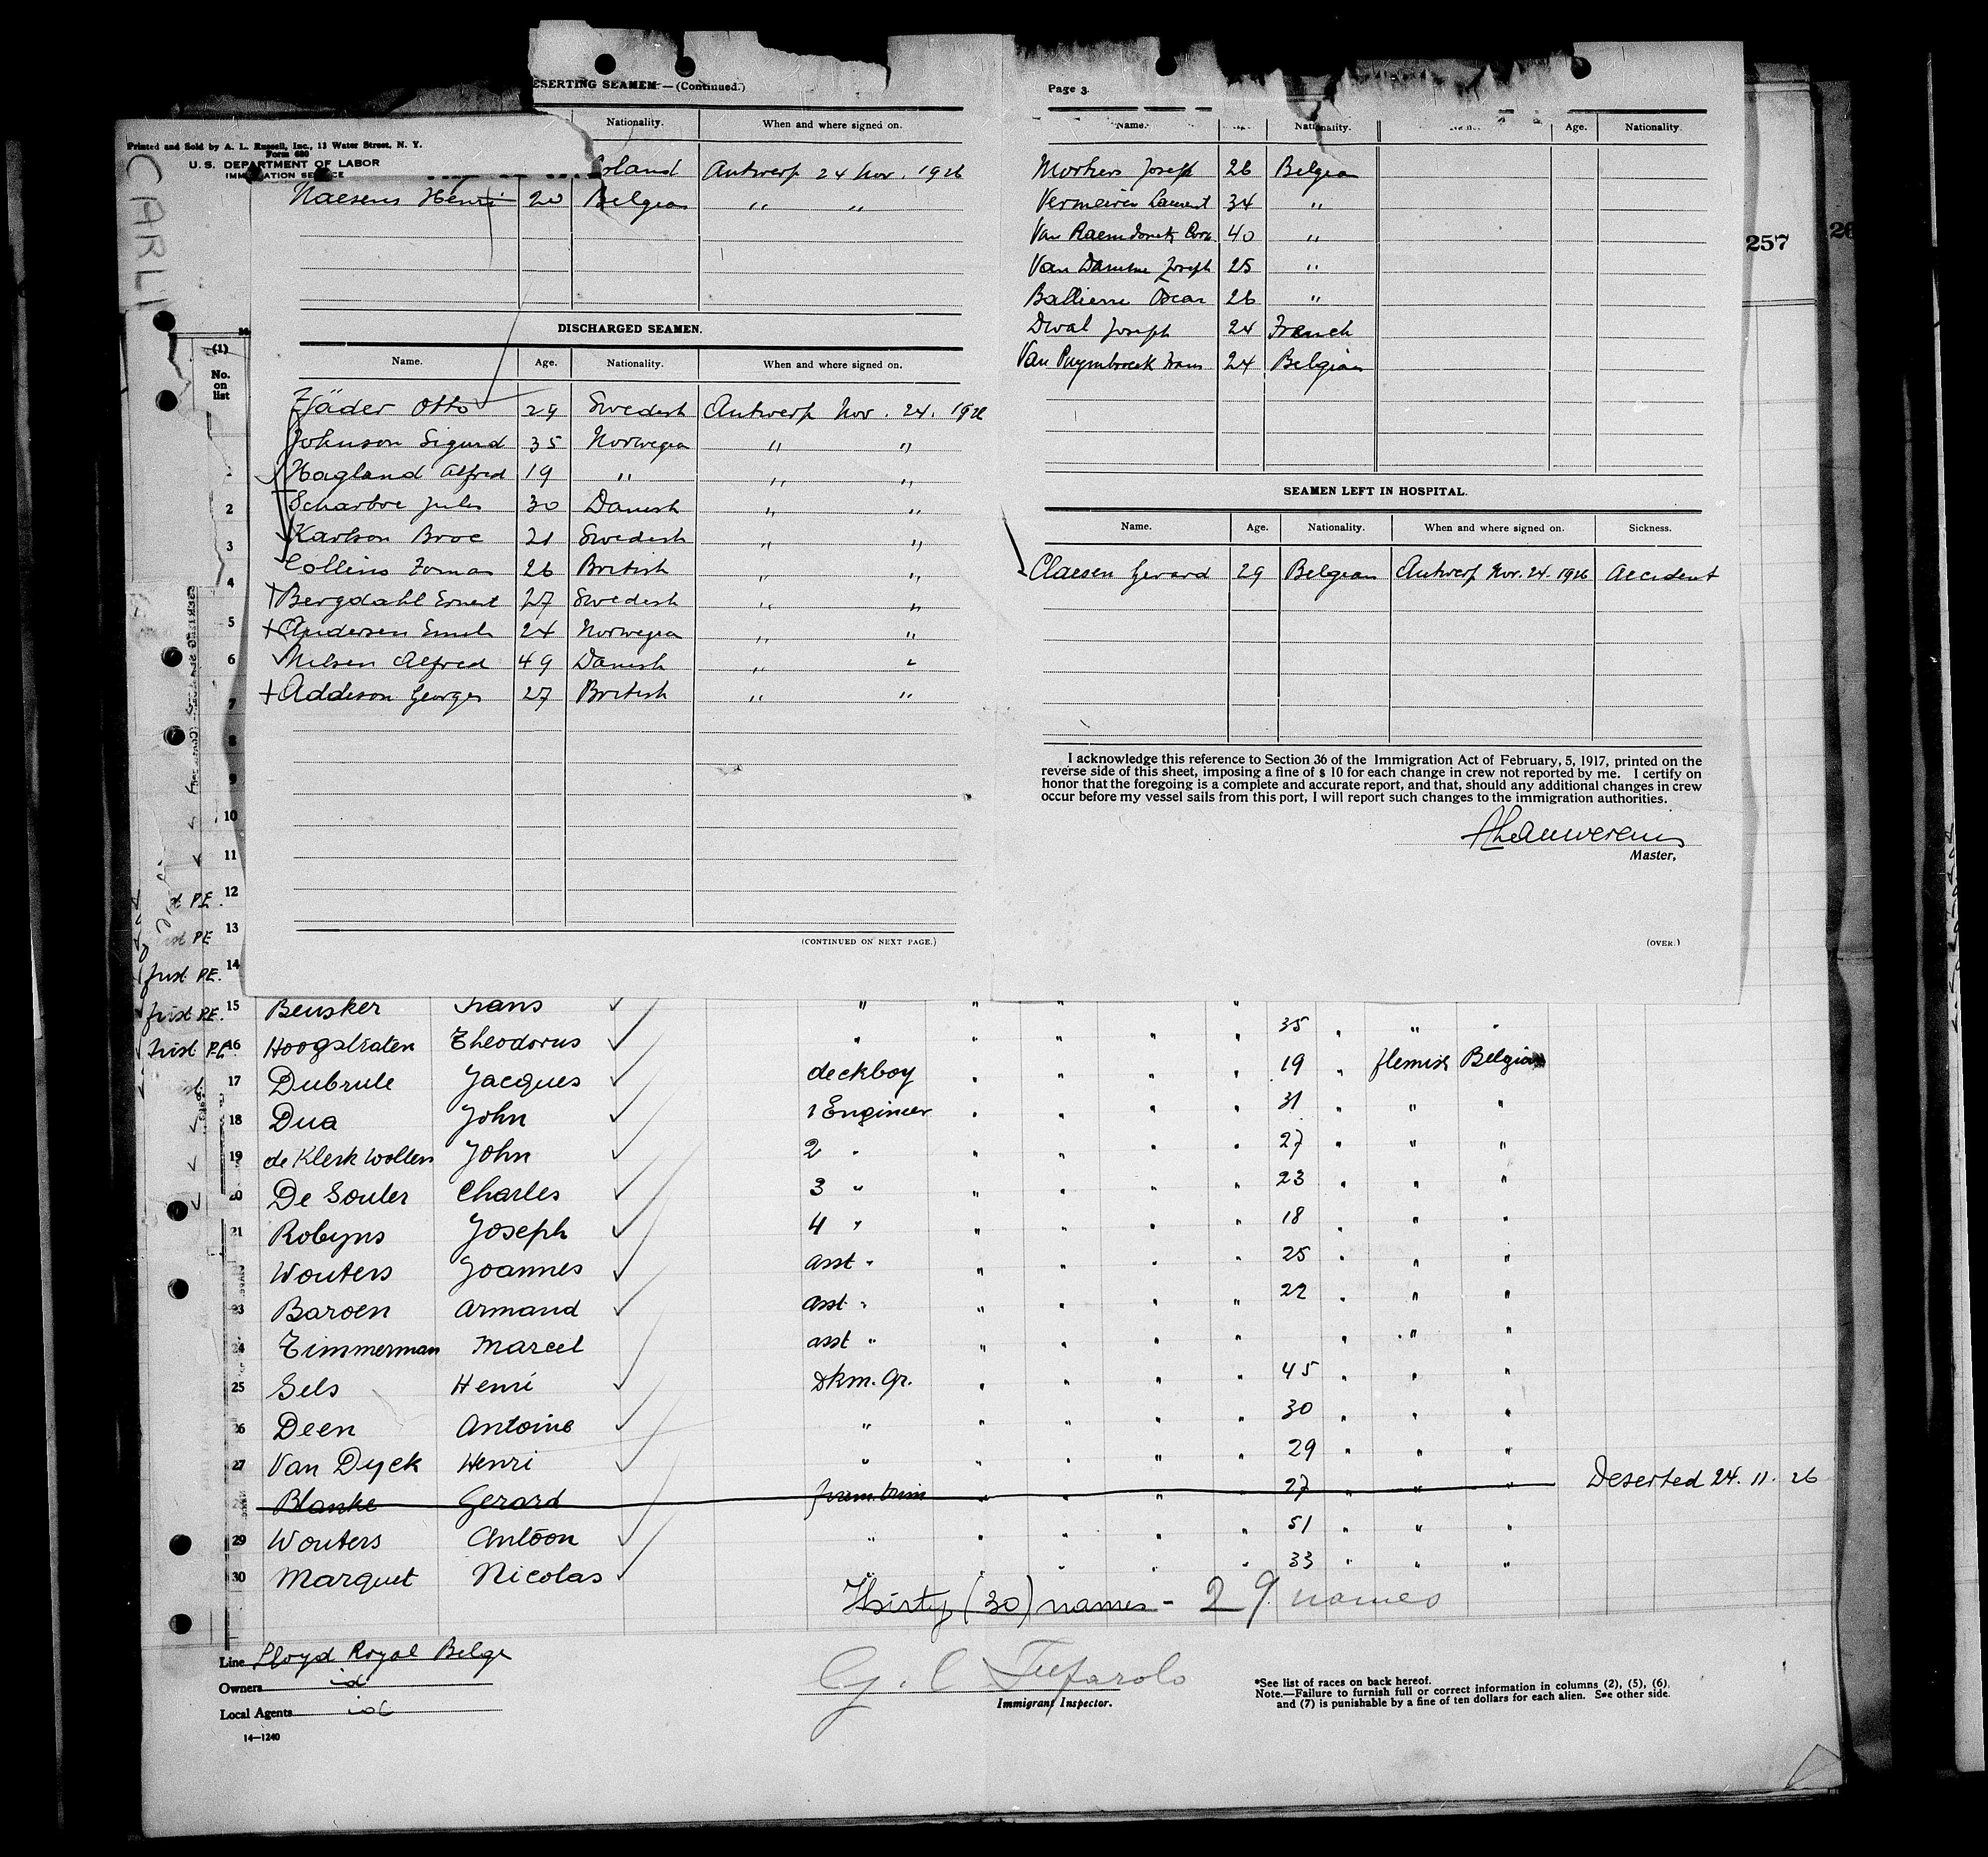 ESERTING SEAMEN.—(Continued.)
Nationality. When and where signed on.
Antwerp 24 Nov. 1926
Naesens Henri 20 Belgian " "
DISCHARGED SEAMEN.
Name. Age. Nationality. When and where signed on.
Otto 29 Swedish Antwerp Nov. 24. 1926
Johnson Sigurd 35 Norwegian " "
Hagland Alfred 19 " " "
Scharboe Jules 30 Danish " "
Karlson Broe 21 Swedish " "
Collins Tomas 26 British " "
Bergdahl Ernest 27 Swedish " "
Andersen Emil 24 Norwegian " "
Nilsen Alfred 49 Danish " "
Addison Georges 27 British " "
(CONTINUED ON NEXT PAGE.)
Page 3
Name. Nationality. Age. Nationality.
Joseph 26 Belgian
Laurent 34 "
Van Raemdonck 40 "
Van Damme Joseph 25 "
Oscar 26 "
Joseph 24 French
Van Puymbroeck Frans 24 Belgian
SEAMEN LEFT IN HOSPITAL.
Name. Age. Nationality. When and where signed on. Sickness.
Claesen Gerard 29 Belgian Antwerp Nov. 24. 1926 Accident
I acknowledge this reference to Section 36 of the Immigration Act of February, 5, 1917, printed on the
reverse side of this sheet, imposing a fine of $ 10 for each change in crew not reported by me. I certify on
honor that the foregoing is a complete and accurate report, and that, should any additional changes in crew
occur before my vessel sails from this port, I will report such changes to the immigration authorities.
Master,
(OVER.)
Printed and Sold by A. L. Russell, Inc., 13 Water Street, N. Y.
Form 680
U. S. DEPARTMENT OF LABOR
IMMIGRATION SERVICE
CARLI
257
(1)
No.
on
list
2
3
4
5
6
7
8
9
10
11
12
13
14
15 Beusker Frans " " " "
16 Hoogstraten Theodorus " " " " 35 " " "
17 Dubrule Jacques deckboy " " " " 19 " flemish Belgian
18 Dua John 1 Engineer " " " " 31 " " "
19 de Klerk Wolters John 2 " " " " " 27 " " "
20 De Souter Charles 3 " " " " " 23 " " "
21 Robyns Joseph 4 " " " " " 18 " " "
Wouters Joannes asst " " " " " 25 " " "
23 Baroen Armand asst " " " " " 22 " " "
24 Timmerman Marcel asst " " " " " " " "
25 Sels Henri Dkm. Gr. " " " " 45 " " "
26 Deen Antoine " " " " " 30 " " "
27 Van Dyck Henri " " " " " 29 " " "
Blanke Gerard " " " " 27 " " " Deserted 24. 11. 26
29 Wouters Antoon " " " " " 51 " " "
30 Marquet Nicolas " " " " " 33 " " "
Thirty (30) names - 29 names
Line Lloyd Royal Belge
Owners id
Local Agents id
14—1240
Immigrant Inspector.
*See list of races on back hereof.
Note.—Failure to furnish full or correct information in columns (2), (5), (6),
and (7) is punishable by a fine of ten dollars for each alien. See other side.